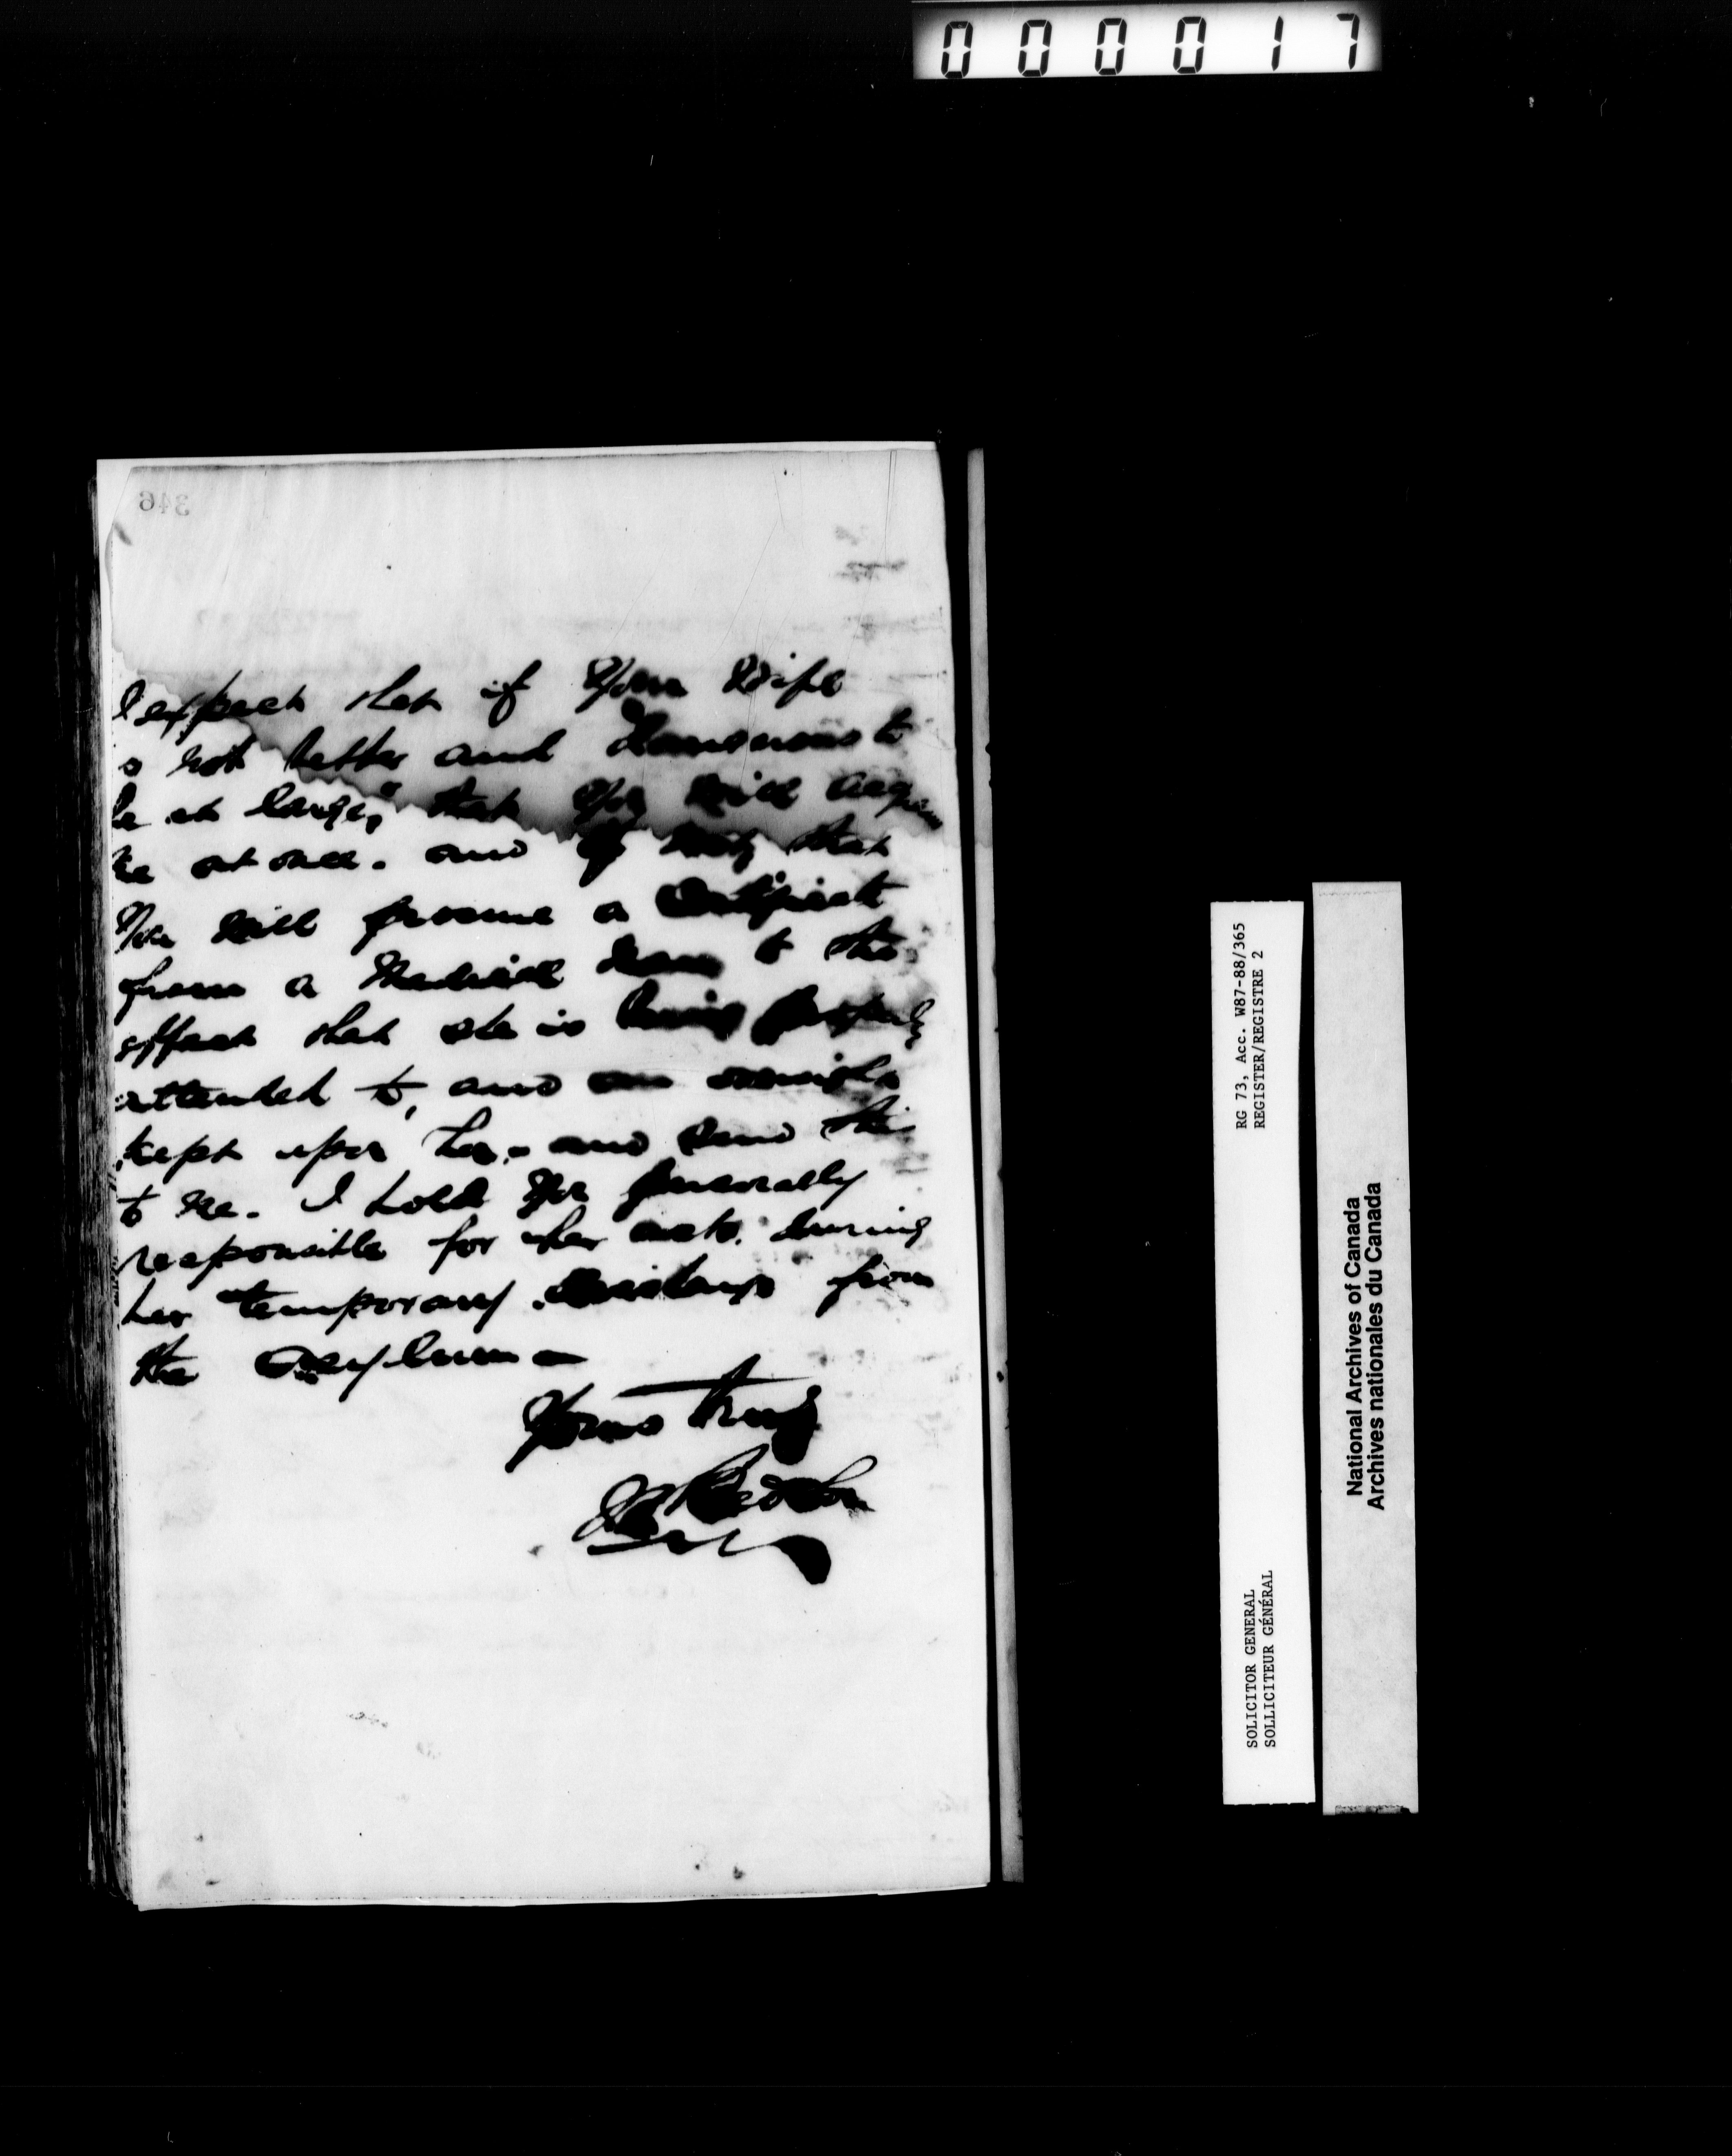 000017
346
I expect that if your Wife
is not better and dangerous to
be at large, that you will
me at once. and if not, that
You will procure a Certificate
from a Medical man to the
effect that she is being properly
attended to, and an oversight
kept upon her. and send this
to me. I hold you personally
responsible for her acts. during
her temporary discharge from
the Asylum
Yours truly
RG 73, Acc. W87-88/365
REGISTER/REGISTRE 2
SOLICITOR GENERAL
SOLLICITEUR GÉNÉRAL
National Archives of Canada
Archives nationales du Canada